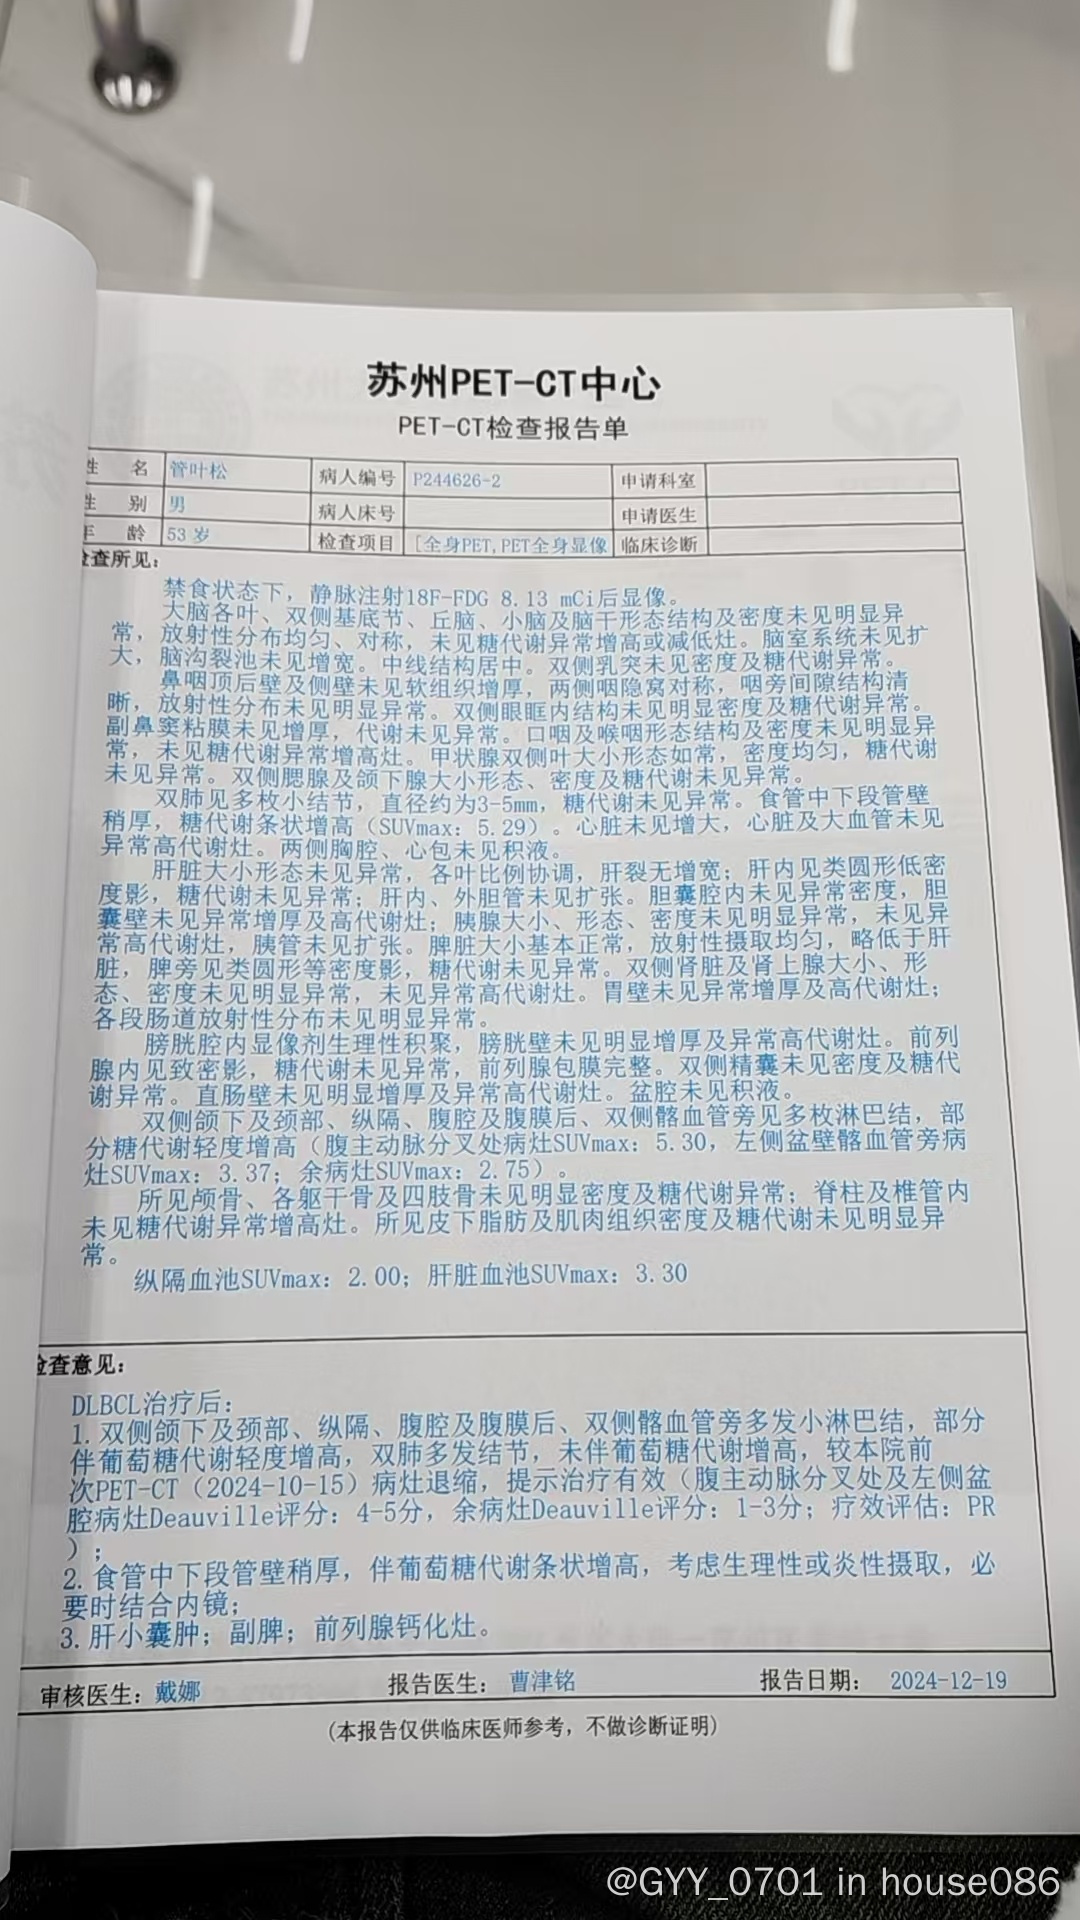 苏州PET-CT中心
PET-CT检查报告单
姓 名 管叶松 病人编号 P244626-2 申请科室
性 别 男 病人床号 申请医生
年 龄 53 岁 检查项目 [全身PET,PET全身显像 临床诊断
检查所见：
禁食状态下，静脉注射18F-FDG 8.13 mCi后显像。
大脑各叶、双侧基底节、丘脑、小脑及脑干形态结构及密度未见明显异
常，放射性分布均匀、对称，未见糖代谢异常增高或减低灶。脑室系统未见扩
大，脑沟裂池未见增宽。中线结构居中。双侧乳突未见密度及糖代谢异常。
鼻咽顶后壁及侧壁未见软组织增厚，两侧咽隐窝对称，咽旁间隙结构清
晰，放射性分布未见明显异常。双侧眼眶内结构未见明显密度及糖代谢异常。
副鼻窦粘膜未见增厚，代谢未见异常。口咽及喉咽形态结构及密度未见明显异
常，未见糖代谢异常增高灶。甲状腺双侧叶大小形态如常，密度均匀，糖代谢
未见异常。双侧腮腺及颌下腺大小形态、密度及糖代谢未见异常。
双肺见多枚小结节，直径约为3-5mm，糖代谢未见异常。食管中下段管壁
稍厚，糖代谢条状增高（SUVmax：5.29）。心脏未见增大，心脏及大血管未见
异常高代谢灶。两侧胸腔、心包未见积液。
肝脏大小形态未见异常，各叶比例协调，肝裂无增宽；肝内见类圆形低密
度影，糖代谢未见异常；肝内、外胆管未见扩张。胆囊腔内未见异常密度，胆
囊壁未见异常增厚及高代谢灶；胰腺大小、形态、密度未见明显异常，未见异
常高代谢灶，胰管未见扩张。脾脏大小基本正常，放射性摄取均匀，略低于肝
脏，脾旁见类圆形等密度影，糖代谢未见异常。双侧肾脏及肾上腺大小、形
态、密度未见明显异常，未见异常高代谢灶。胃壁未见异常增厚及高代谢灶；
各段肠道放射性分布未见明显异常。
膀胱腔内显像剂生理性积聚，膀胱壁未见明显增厚及异常高代谢灶。前列
腺内见致密影，糖代谢未见异常，前列腺包膜完整。双侧精囊未见密度及糖代
谢异常。直肠壁未见明显增厚及异常高代谢灶。盆腔未见积液。
双侧颌下及颈部、纵隔、腹腔及腹膜后、双侧髂血管旁见多枚淋巴结，部
分糖代谢轻度增高（腹主动脉分叉处病灶SUVmax：5.30，左侧盆壁髂血管旁病
灶SUVmax：3.37；余病灶SUVmax：2.75）。
所见颅骨、各躯干骨及四肢骨未见明显密度及糖代谢异常；脊柱及椎管内
未见糖代谢异常增高灶。所见皮下脂肪及肌肉组织密度及糖代谢未见明显异
常。
纵隔血池SUVmax：2.00；肝脏血池SUVmax：3.30
检查意见：
DLBCL治疗后：
1.双侧颌下及颈部、纵隔、腹腔及腹膜后、双侧髂血管旁多发小淋巴结，部分
伴葡萄糖代谢轻度增高，双肺多发结节，未伴葡萄糖代谢增高，较本院前
次PET-CT（2024-10-15）病灶退缩，提示治疗有效（腹主动脉分叉处及左侧盆
腔病灶Deauville评分：4-5分，余病灶Deauville评分：1-3分；疗效评估：PR
）；
2.食管中下段管壁稍厚，伴葡萄糖代谢条状增高，考虑生理性或炎性摄取，必
要时结合内镜；
3.肝小囊肿；副脾；前列腺钙化灶。
审核医生：戴娜 报告医生：曹津铭 报告日期： 2024-12-19
(本报告仅供临床医师参考，不做诊断证明)
@GYY_0701 in house086